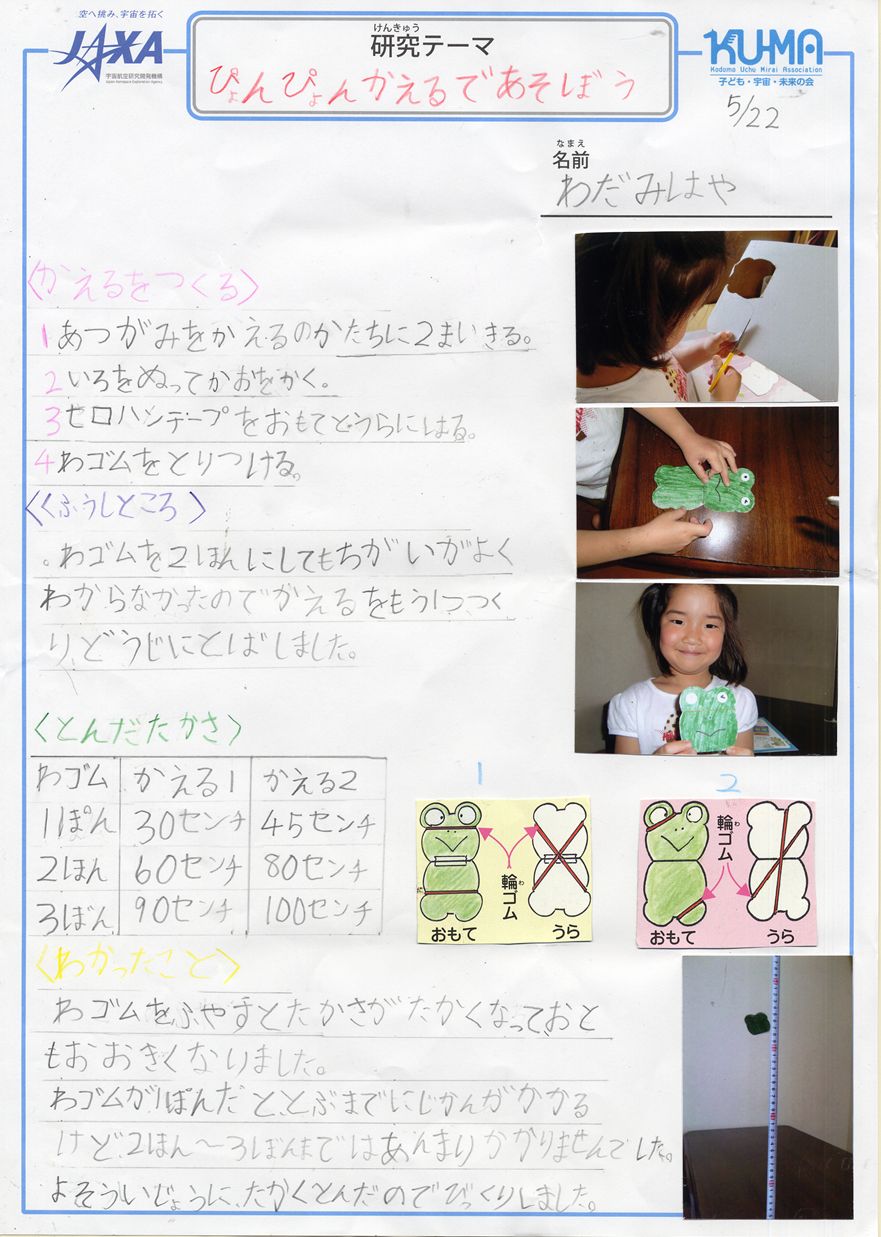 空へ挑み、宇宙を拓く
JAXA
宇宙航空研究開発機構
Japan Aerospace Exploration Agency
けんきゅう
研究テーマ
ぴょんぴょんかえるであそぼう
KU-MA
Kodomo Uchu Mirai Association
子ども・宇宙・未来の会
5/22
なまえ
名前
わだみはや
〈かえるをつくる〉
1 あつがみをかえるのかたちに2まいきる。
2 いろをぬってかおをかく。
3 セロハンテープをおもてとうらにはる。
4 わゴムをとりつける。
〈くふうしところ〉
。わゴムを2ほんにしてもちがいがよく
わからなかったのでかえるをもう1つつく
り、どうじにとばしました。
〈とんだたかさ〉
わゴム かえる1 かえる2
1ぽん 30センチ 45センチ
2ほん 60センチ 80センチ
3ぼん 90センチ 100センチ
1
輪ゴム
わ
おもて うら
2
輪ゴム
わ
おもて うら
〈わかったこと〉
わゴムをふやすとたかさがたかくなっておと
もおおきくなりました。
わゴムが1ぽんだととぶまでにじかんがかかる
けど2ほん～3ぼんまではあんまりかかりませんでした。
よそういじょうに、たかくとんだのでびっくりしました。